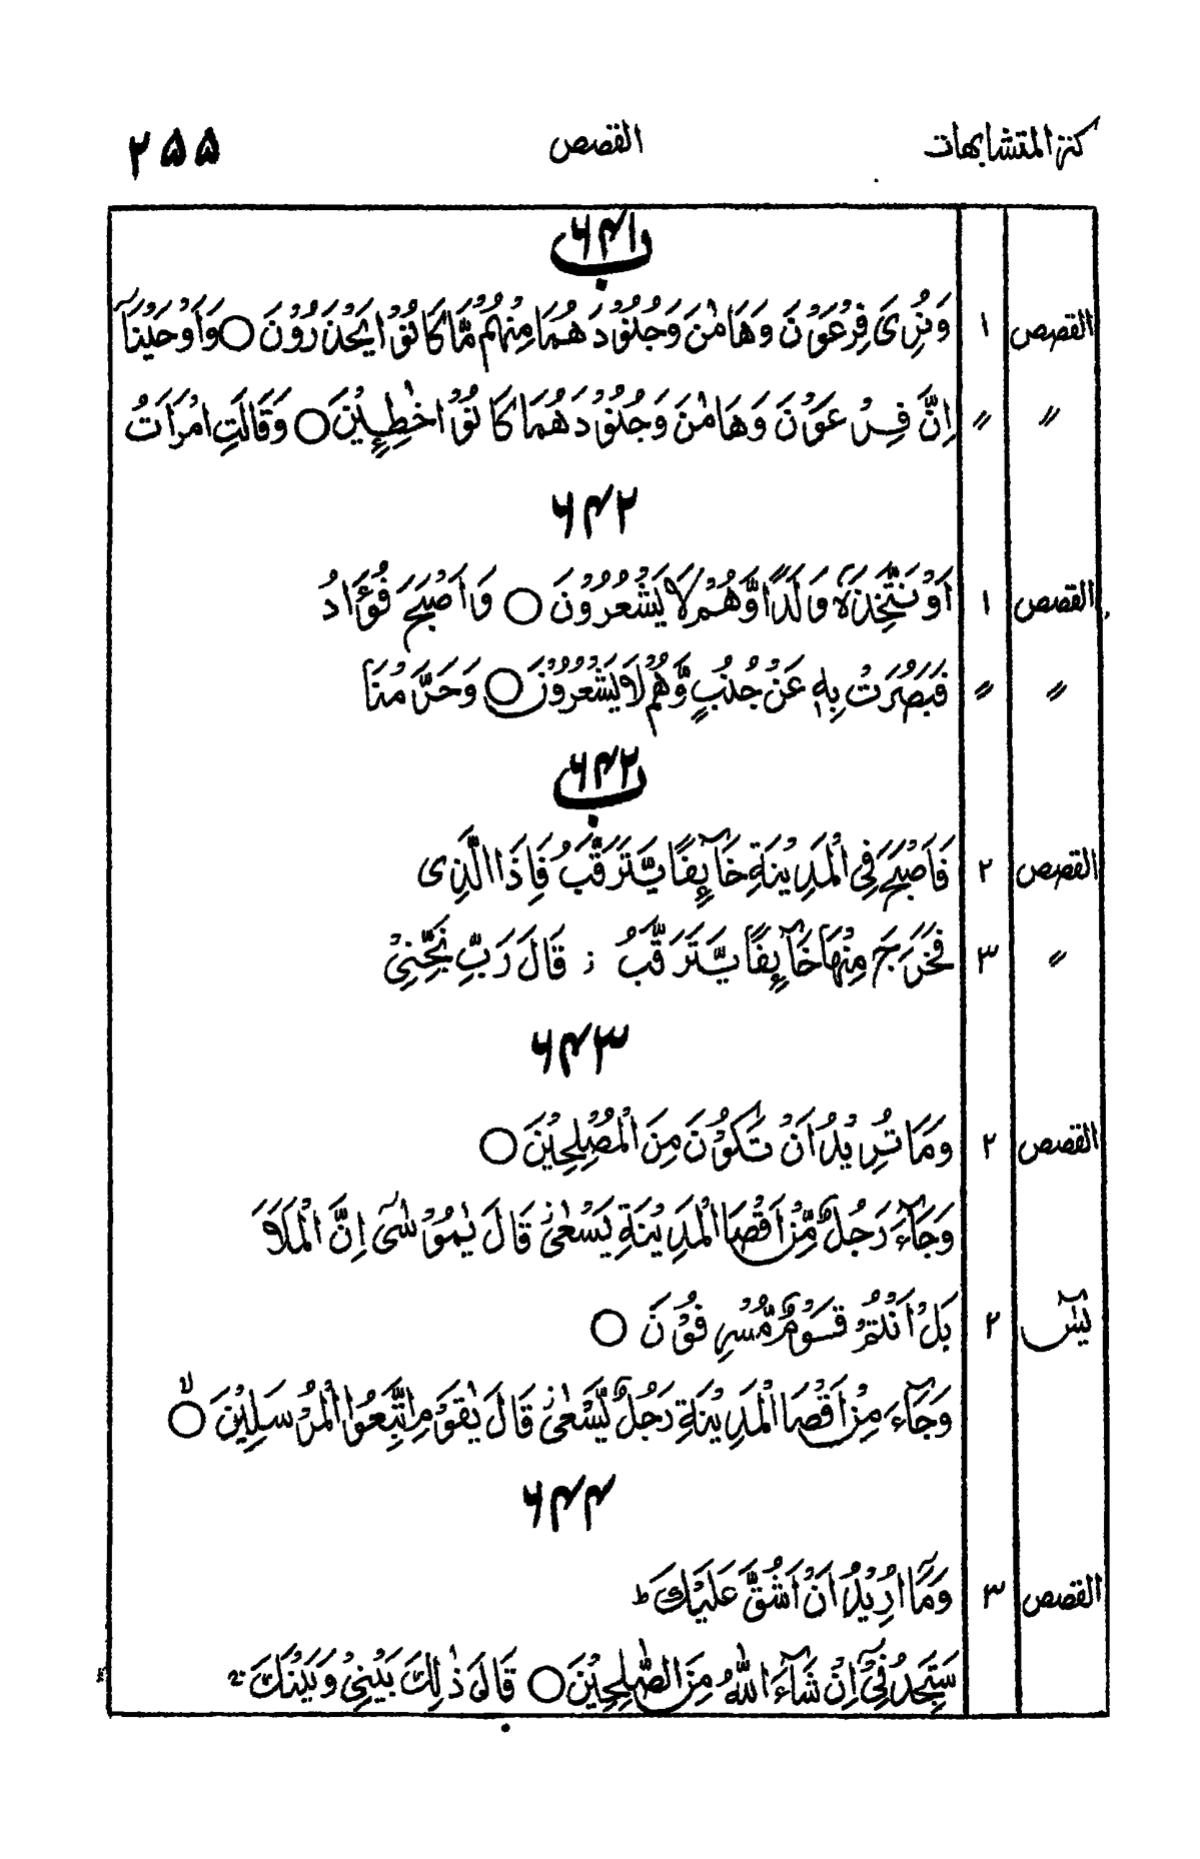 كنز المتشابهات القصص ۲۵۵
۶۴۱ ب
القصص ۱ وَنُرِىَ فِرْعَوْنَ وَهَامٰنَ وَجُنُوْدَهُمَا مِنْهُمْ مَّا كَانُوْا يَحْذَرُوْنَ ○ وَاَوْحَيْنَآ
〃 〃 اِنَّ فِرْعَوْنَ وَهَامٰنَ وَجُنُوْدَهُمَا كَانُوْا خٰطِـِٕيْنَ ○ وَقَالَتِ امْرَاَتُ
۶۴۲
القصص ۱ اَوْ نَتَّخِذَهٗ وَلَدًا وَّهُمْ لَا يَشْعُرُوْنَ ○ وَاَصْبَحَ فُؤَادُ
〃 〃 فَبَصُرَتْ بِهٖ عَنْ جُنُبٍ وَّهُمْ لَا يَشْعُرُوْنَ ○ وَحَرَّمْنَا
۶۴۲ ب
القصص ۲ فَاَصْبَحَ فِى الْمَدِيْنَةِ خَآئِفًا يَّتَرَقَّبُ فَاِذَا الَّذِى
〃 ۳ فَخَرَجَ مِنْهَا خَآئِفًا يَّتَرَقَّبُ ز قَالَ رَبِّ نَجِّنِىْ
۶۴۳
القصص ۲ وَمَا تُرِيْدُ اَنْ تَكُوْنَ مِنَ الْمُصْلِحِيْنَ ○
وَجَآءَ رَجُلٌ مِّنْ اَقْصَا الْمَدِيْنَةِ يَسْعٰى ز قَالَ يٰمُوْسٰٓى اِنَّ الْمَلَاَ
يٰسٓ ۲ بَلْ اَنْتُمْ قَوْمٌ مُّسْرِفُوْنَ ○
وَجَآءَ مِنْ اَقْصَا الْمَدِيْنَةِ رَجُلٌ يَّسْعٰى ز قَالَ يٰقَوْمِ اتَّبِعُوا الْمُرْسَلِيْنَ ○ لا
۶۴۴
القصص ۳ وَمَآ اُرِيْدُ اَنْ اَشُقَّ عَلَيْكَ ط
سَتَجِدُنِىْٓ اِنْ شَآءَ اللّٰهُ مِنَ الصّٰلِحِيْنَ ○ قَالَ ذٰلِكَ بَيْنِىْ وَبَيْنَكَ